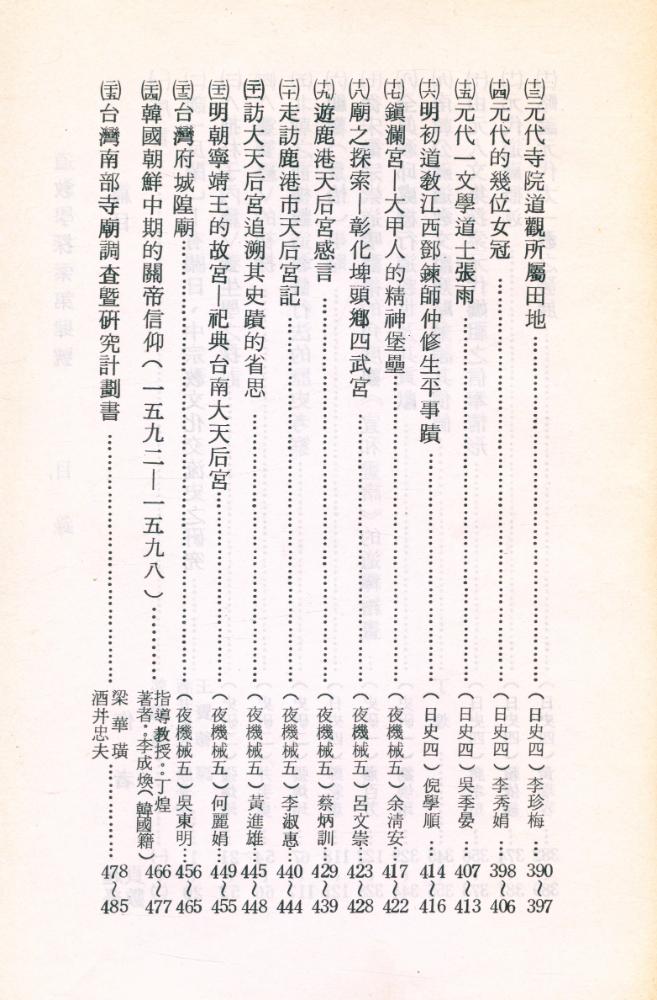 ㈩元代寺院道觀所屬田地……(日史四)李珍梅…390~397
㈩元代的幾位女冠……(日史四)李秀娟…398~406
㈩元代一文學道士張雨……(日史四)吳季晏…407~413
㈩明初道教江西鄧鍊師仲修生平事蹟……(日史四)倪學順…414~416
㈩鎮瀾宮—大甲人的精神堡壘……(夜機械五)余清安…417~422
㈩廟之探索—彰化埤頭鄉四武宮……(夜機械五)呂文崇…423~428
㈩遊鹿港天后宮感言……(夜機械五)蔡炳訓…429~439
走訪鹿港市天后宮記……(夜機械五)李淑惠…440~444
訪大天后宮追溯其史蹟的省思……(夜機械五)黃進雄…445~448
明朝寧靖王的故宮—祀典台南大天后宮……(夜機械五)何麗娟…449~455
台灣府城隍廟……(夜機械五)吳東明…456~465
韓國朝鮮中期的關帝信仰(一五九二—一五九八)……指導教授:丁煌
著者:李成煥(韓國籍)466~477
台灣南部寺廟調查暨研究計劃書……梁華璜
酒井忠夫…478~485